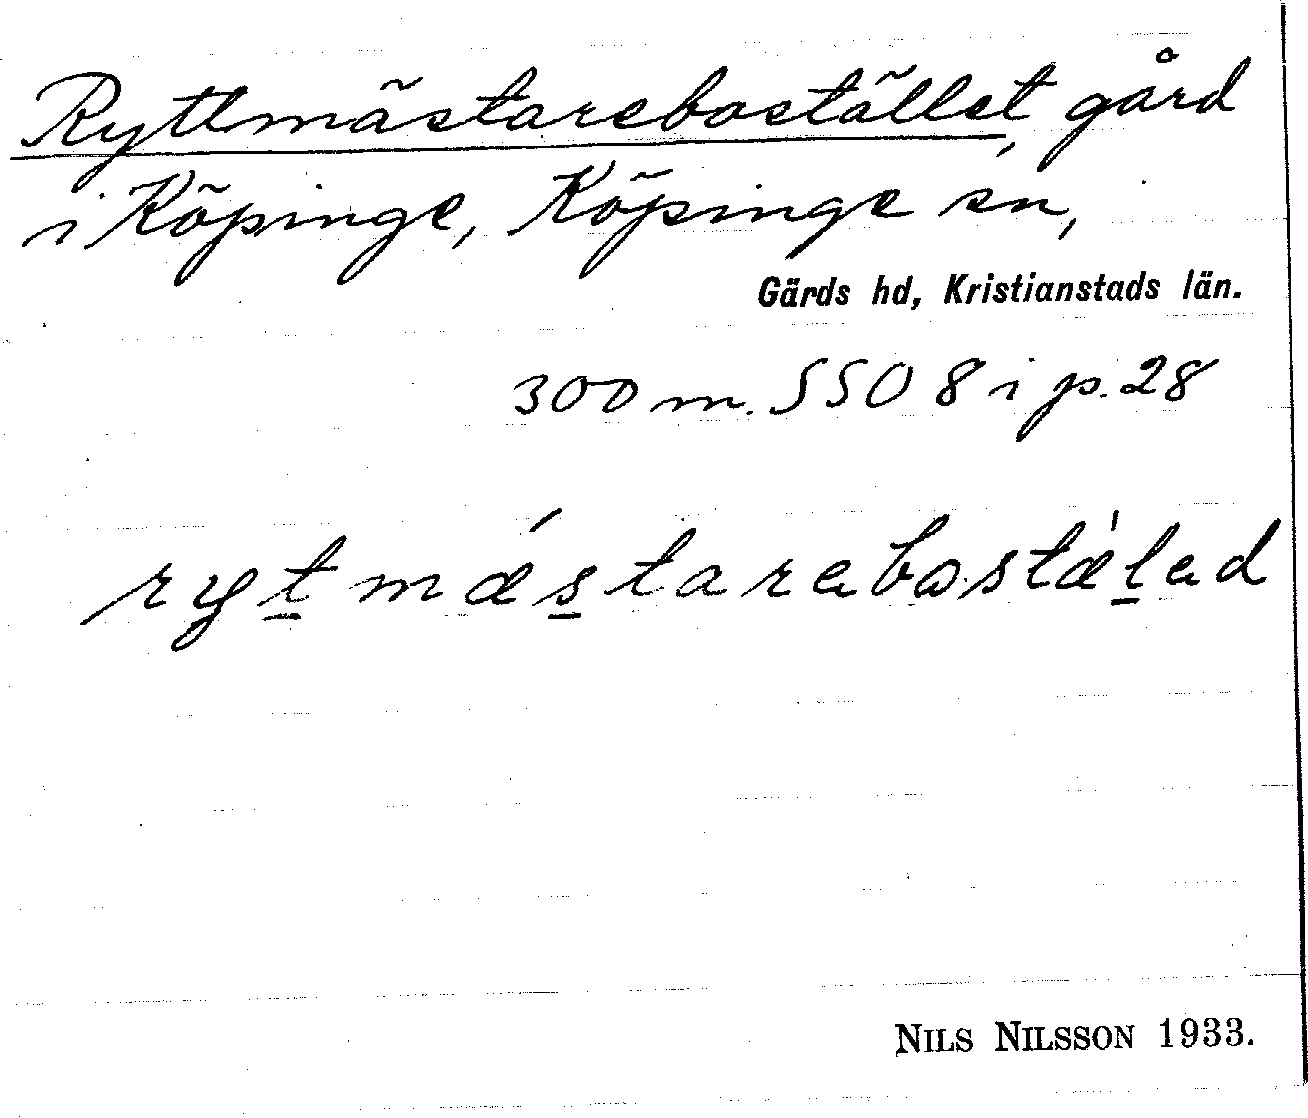 Ryttmästarebostället, gård
i Köpinge, Köpinge sn,
Gärds hd, Kristianstads län.
300 m. SSO 8 i p. 28
rytmǽstarebostæ̍led
NILS NILSSON 1933.